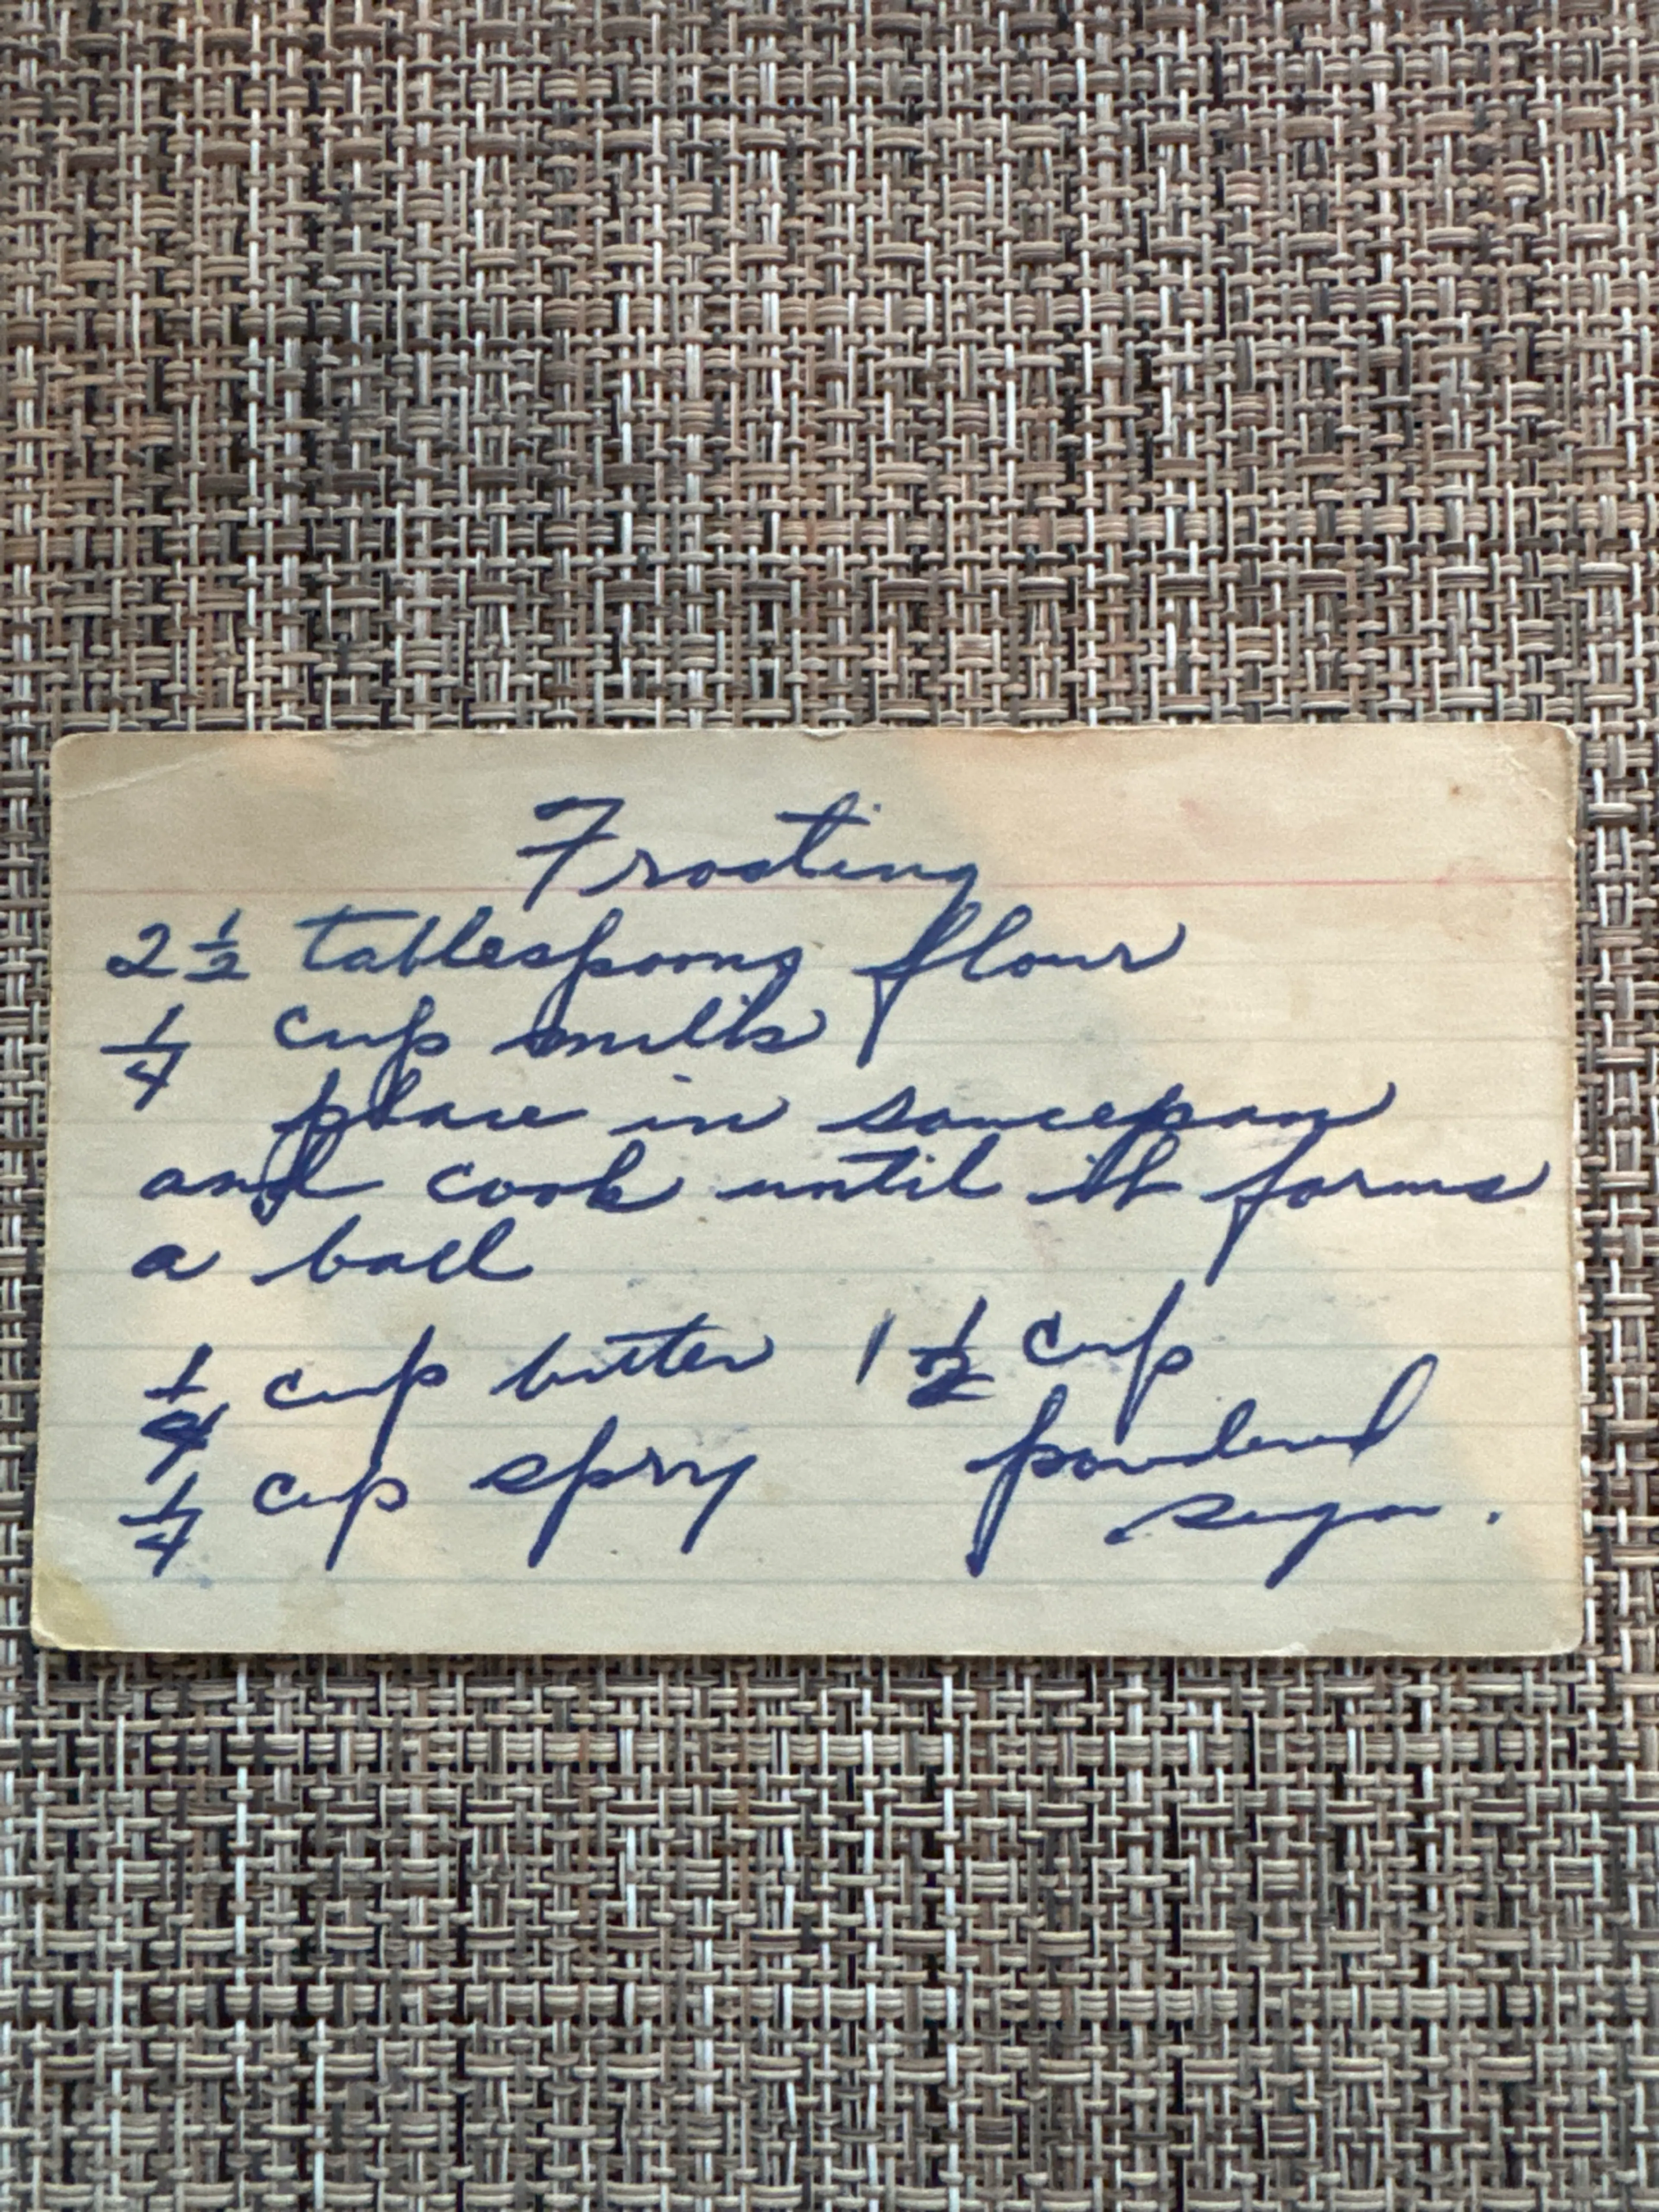 Frosting
2 1/2 tablespoons flour
1/4 cup milk
place in saucepan
and cook until it forms
a ball
1/4 cup butter 1 1/2 cup
powdered
1/4 cup spry
sugar.